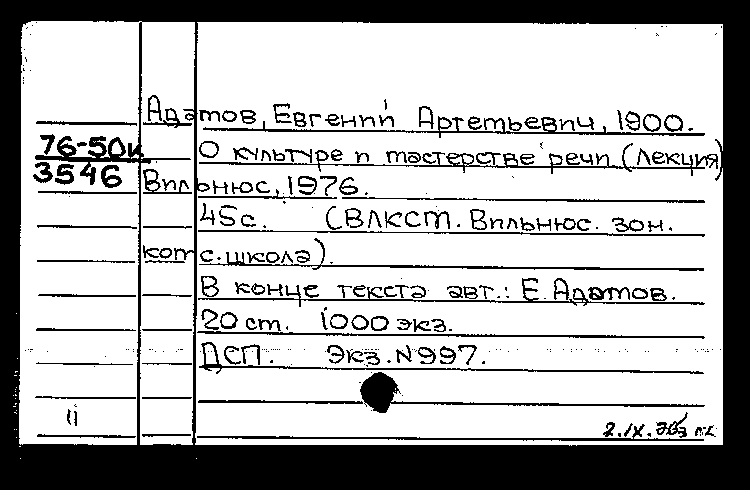 Адамов, Евгений Артемьевич, 1900.
76-50к
3546
О культуре и мастерстве речи (Лекция)
Вильнюс, 1976.
45с. (ВЛКСМ. Вильнюс. зон.
комс. школа).
В конце текста авт.: Е. Адамов.
20 см. 1000 экз.
ДСП. Экз. N 997.
11
2.IX.